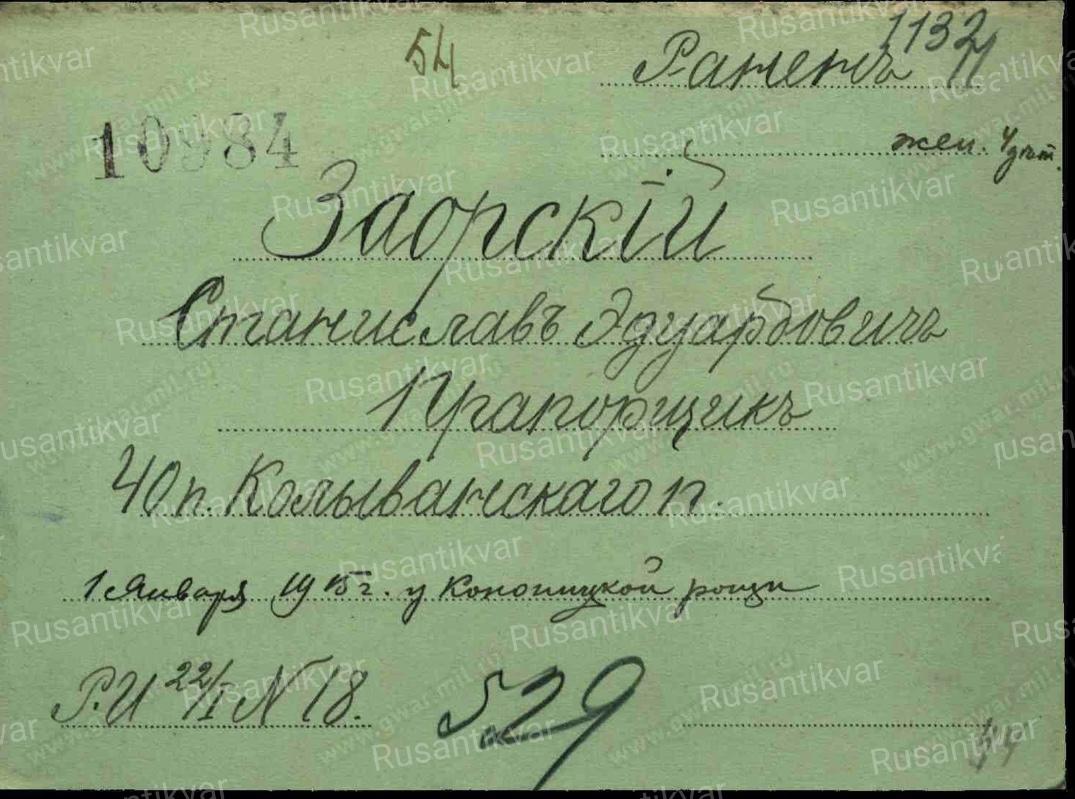 54
1132
Раненъ
10984
жен. 4 дѣт.
Заорскій
Станиславъ Эдуардовичъ
Прапорщикъ
40 п. Колыванскаго п.
1 Января 1915 г. у Конопницкой рощи
Р.И 22/I N 18.
529
Rusantikvar
www.gwar.mil.ru